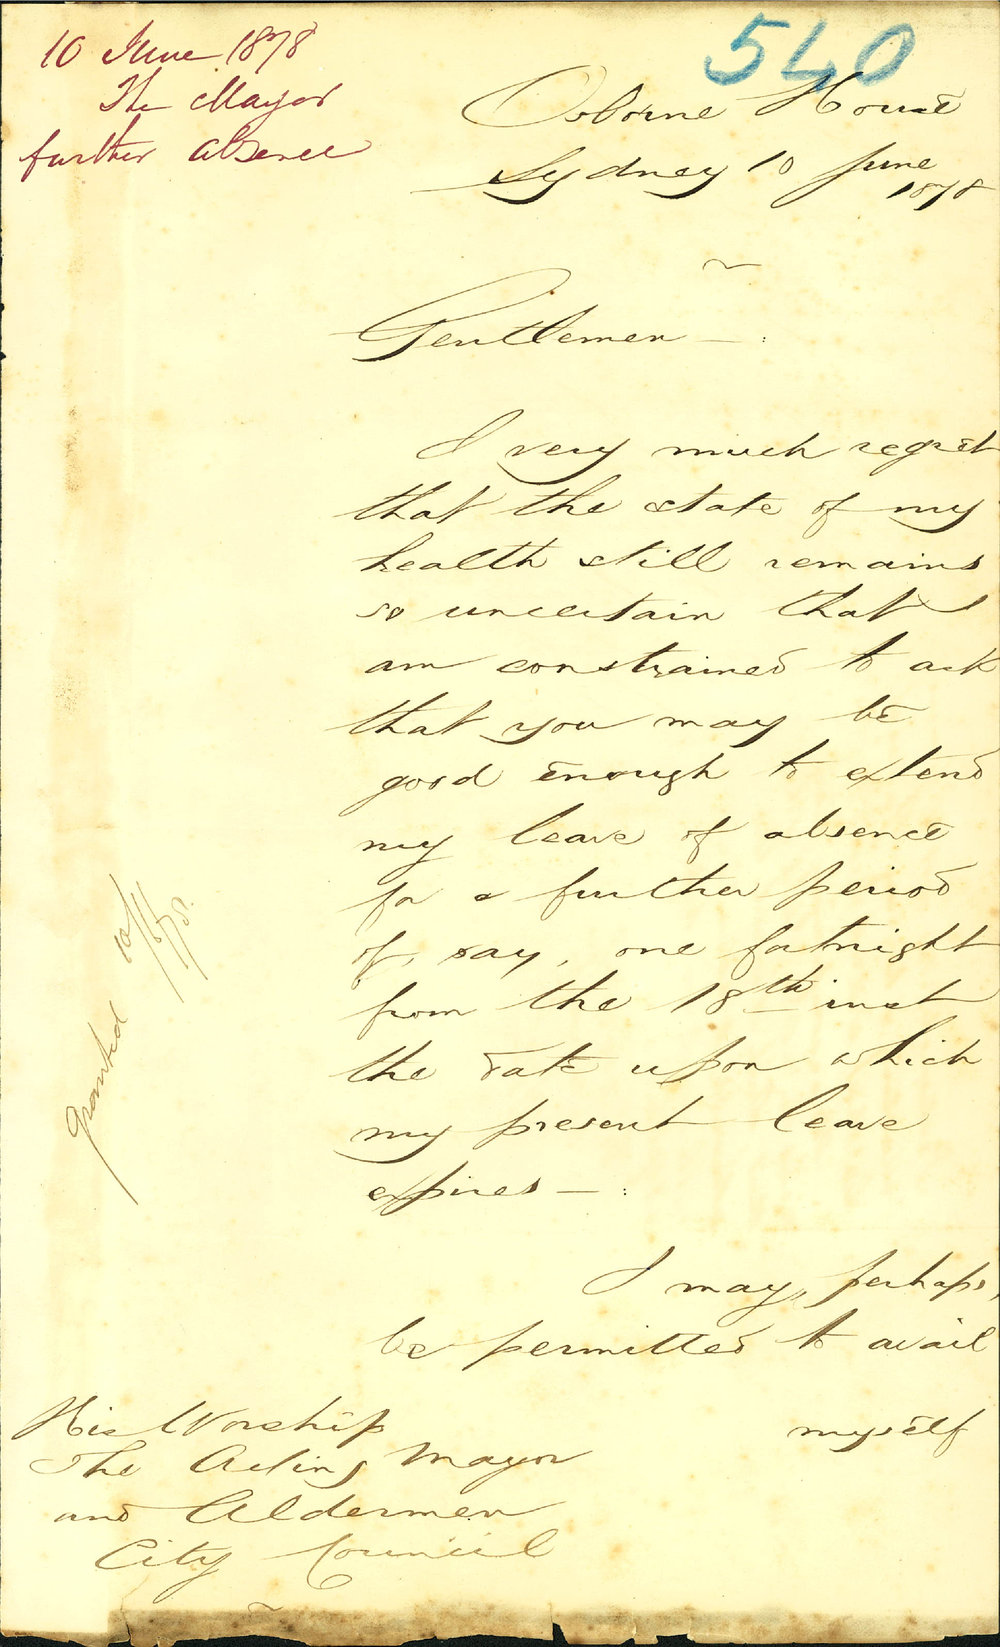 10 June 1878
The Mayor
further absence
540
Osborne House
Sydney 10 June
1878
Gentlemen — .
I very much regret
that the state of my
health still remains
so uncertain that I
am constrained to ask
that you may be
good enough to extend
my leave of absence
for a further period
of, say, one fortnight
from the 18th inst
the date upon which
my present leave
expires — :
I may, perhaps,
be permitted to avail
myself
His Worship
The Acting Mayor
and Aldermen
City Council
Granted 10/6/78.